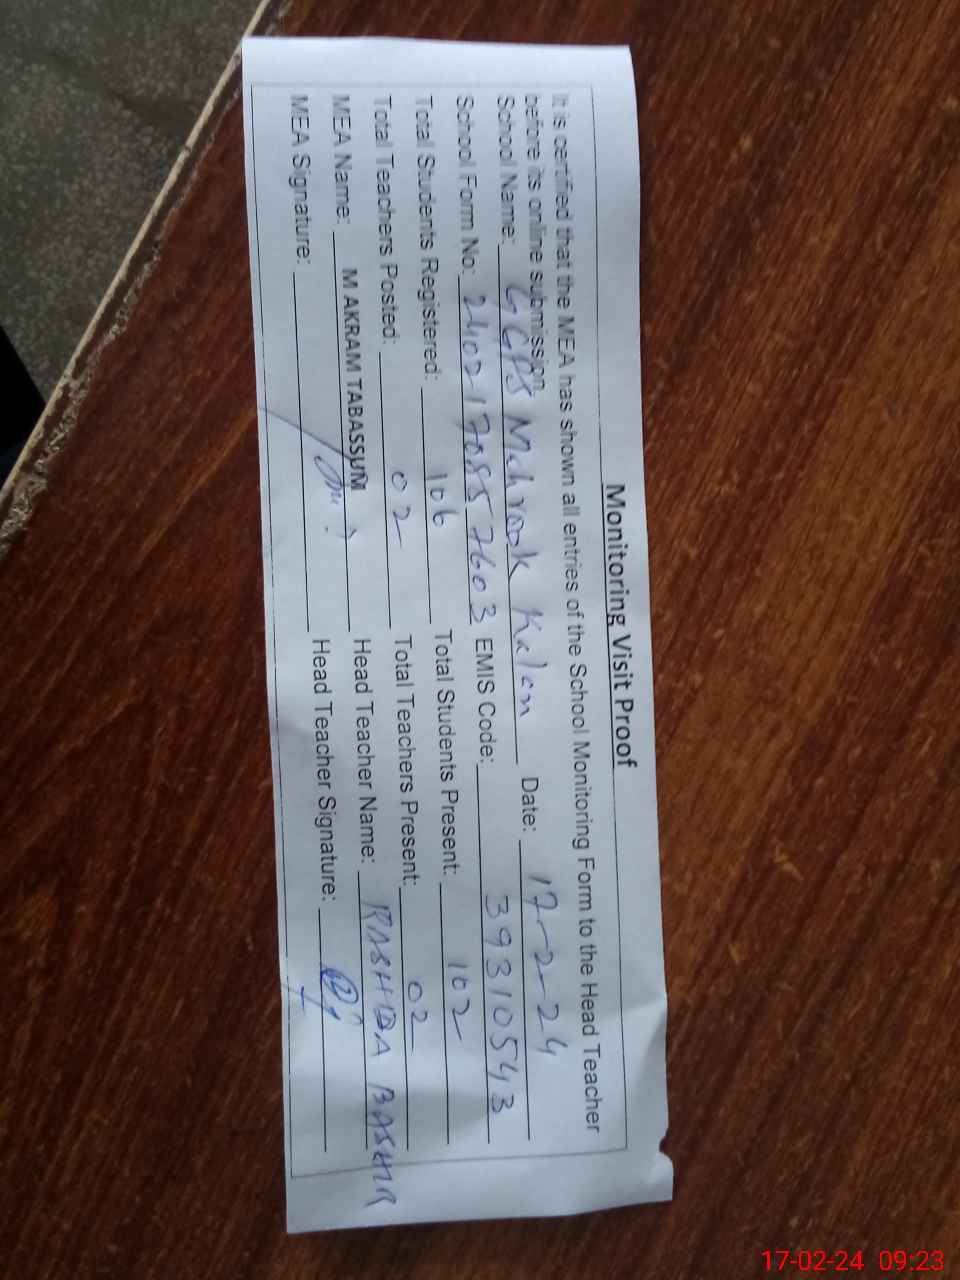 Monitoring Visit Proof
It is certified that the MEA has shown all entries of the School Monitoring Form to the Head Teacher
before its online submission.
School Name: GGPS Mehrook Kalan Date: 17-2-24
School Form No: 2402170857603 EMIS Code: 39310543
Total Students Registered: 106 Total Students Present: 102
Total Teachers Posted: 02 Total Teachers Present: 02
MEA Name: M AKRAM TABASSUM Head Teacher Name: RASHIDA BASHIR
MEA Signature: Head Teacher Signature:
17-02-24 09:23